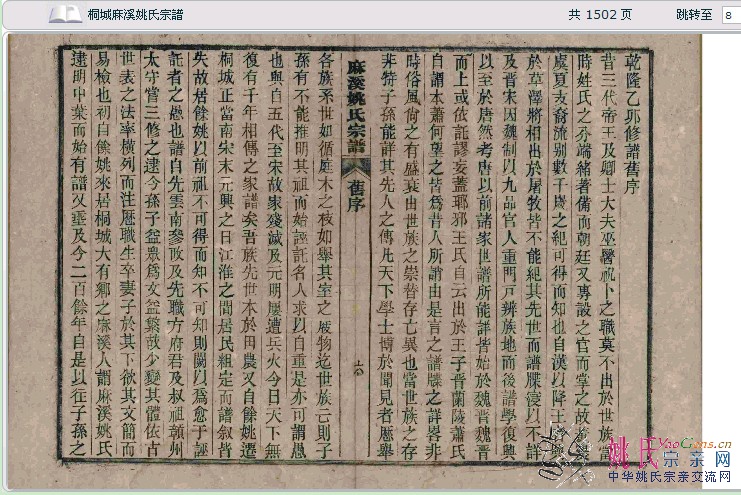 桐城麻溪姚氏宗譜
共 1502 页
跳转至
8
乾隆乙卯修譜舊序
昔三代帝王及卿士大夫巫醫祝卜之職莫不出於世族當
時姓氏之分端緒著備而朝廷又專設之官而掌之故
虞夏支裔流别數千歲之紀可得而知也自漢以降王
於草澤將相出於屠牧皆不能紀其先世而譜牒寖以不詳
及晉宋因魏制以九品官人重門戸辨族地而後譜學復興
以至於唐然考唐以前諸家世譜所能詳皆始於魏晉魏晉
而上或依託謬妄蓋瑯邪王氏自云出於王子晉蘭陵蕭氏
自謂本蕭何望之皆爲昔人所謂由是言之譜牒之詳畧非
時俗風尚之有盛衰由世族之崇替存亡異也當世族之存
非特子孫能詳其先人之傳凡天下學士博於聞見者厯舉
麻溪姚氏宗譜
舊序
各族系世如循庭木之枝如舉其室之廢物迄世族亡則子
孫有不能推明其祖而始誣託名人求以自重是亦可謂愚
也與自五代至宋故家殘滅及元明屢遭兵火今日天下無
復有千年相傳之家譜矣吾族先世本於田農又自餘姚遷
桐城正當南宋末元興之日江淮之間居民粗定而譜叙皆
失故居餘姚以前祖不可得而知不可知則闕以爲愈于誣
託者之愚也譜自先雲南參政及先職方府君及叔祖贛州
太守嘗三修之逮今孫子益衆爲文益繁哉少變其體依古
世表之法率横列而注厯職生卒妻子於其下欲其文簡而
易檢也初自餘姚來居桐城大有鄉之麻溪人謂麻溪姚氏
逮明中葉而始有譜又垂及今二百餘年自是以往子孫之
姚氏YaoGens.cn
宗亲网
中华姚氏宗亲交流网